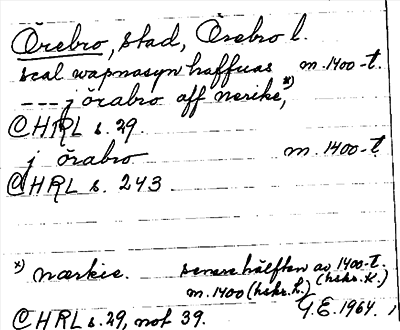 Örebro, stad, Örebro l.
scal wapnasyn haffuas m. 1400-t.
--- j örabro aff nerike, *)
© HRL s. 29.
j örabro m. 1400-t.
© HRL s. 243
*) nærkie. senare hälften av 1400-t.
m. 1400 (hskr. L.) (hskr. K.)
© HRL s. 29, not 39. G.E. 1964.